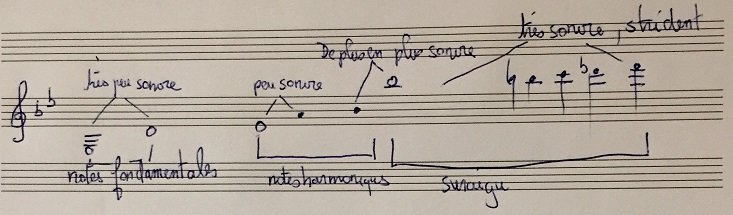 très sonore, strident
De plus en plus sonore
très peu sonore
peu sonore
notes fondamentales
notes harmoniques
suraigu